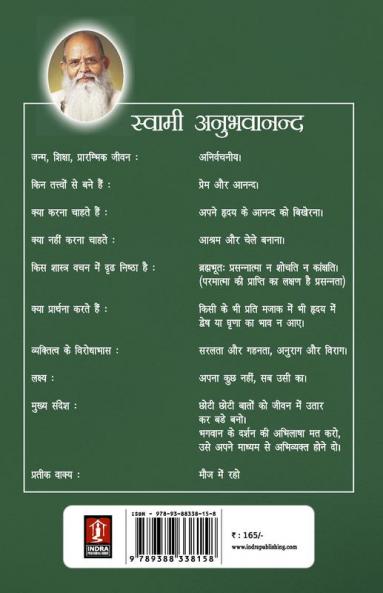 स्वामी अनुभवानन्द
जन्म, शिक्षा, प्रारम्भिक जीवन : अनिर्वचनीय।
किन तत्त्वों से बने हैं : प्रेम और आनन्द।
क्या करना चाहते हैं : अपने हृदय के आनन्द को बिखेरना।
क्या नहीं करना चाहते : आश्रम और चेले बनाना।
किस शास्त्र वचन में दृढ निष्ठा है : ब्रह्मभूतः प्रसन्नात्मा न शोचति न कांक्षति।
(परमात्मा की प्राप्ति का लक्षण है प्रसन्नता)
क्या प्रार्थना करते हैं : किसी के भी प्रति मजाक में भी हृदय में
द्वेष या घृणा का भाव न आए।
व्यक्तित्व के विरोधाभास : सरलता और गहनता, अनुराग और विराग।
लक्ष्य : अपना कुछ नहीं, सब उसी का।
मुख्य संदेश : छोटी छोटी बातों को जीवन में उतार
कर बडे बनो।
भगवान के दर्शन की अभिलाषा मत करो,
उसे अपने माध्यम से अभिव्यक्त होने दो।
प्रतीक वाक्य : मौज में रहो
INDRA
ISBN - 978-93-88338-15-8
9 789388 338158
₹ : 165/-
www.indrapublishing.com